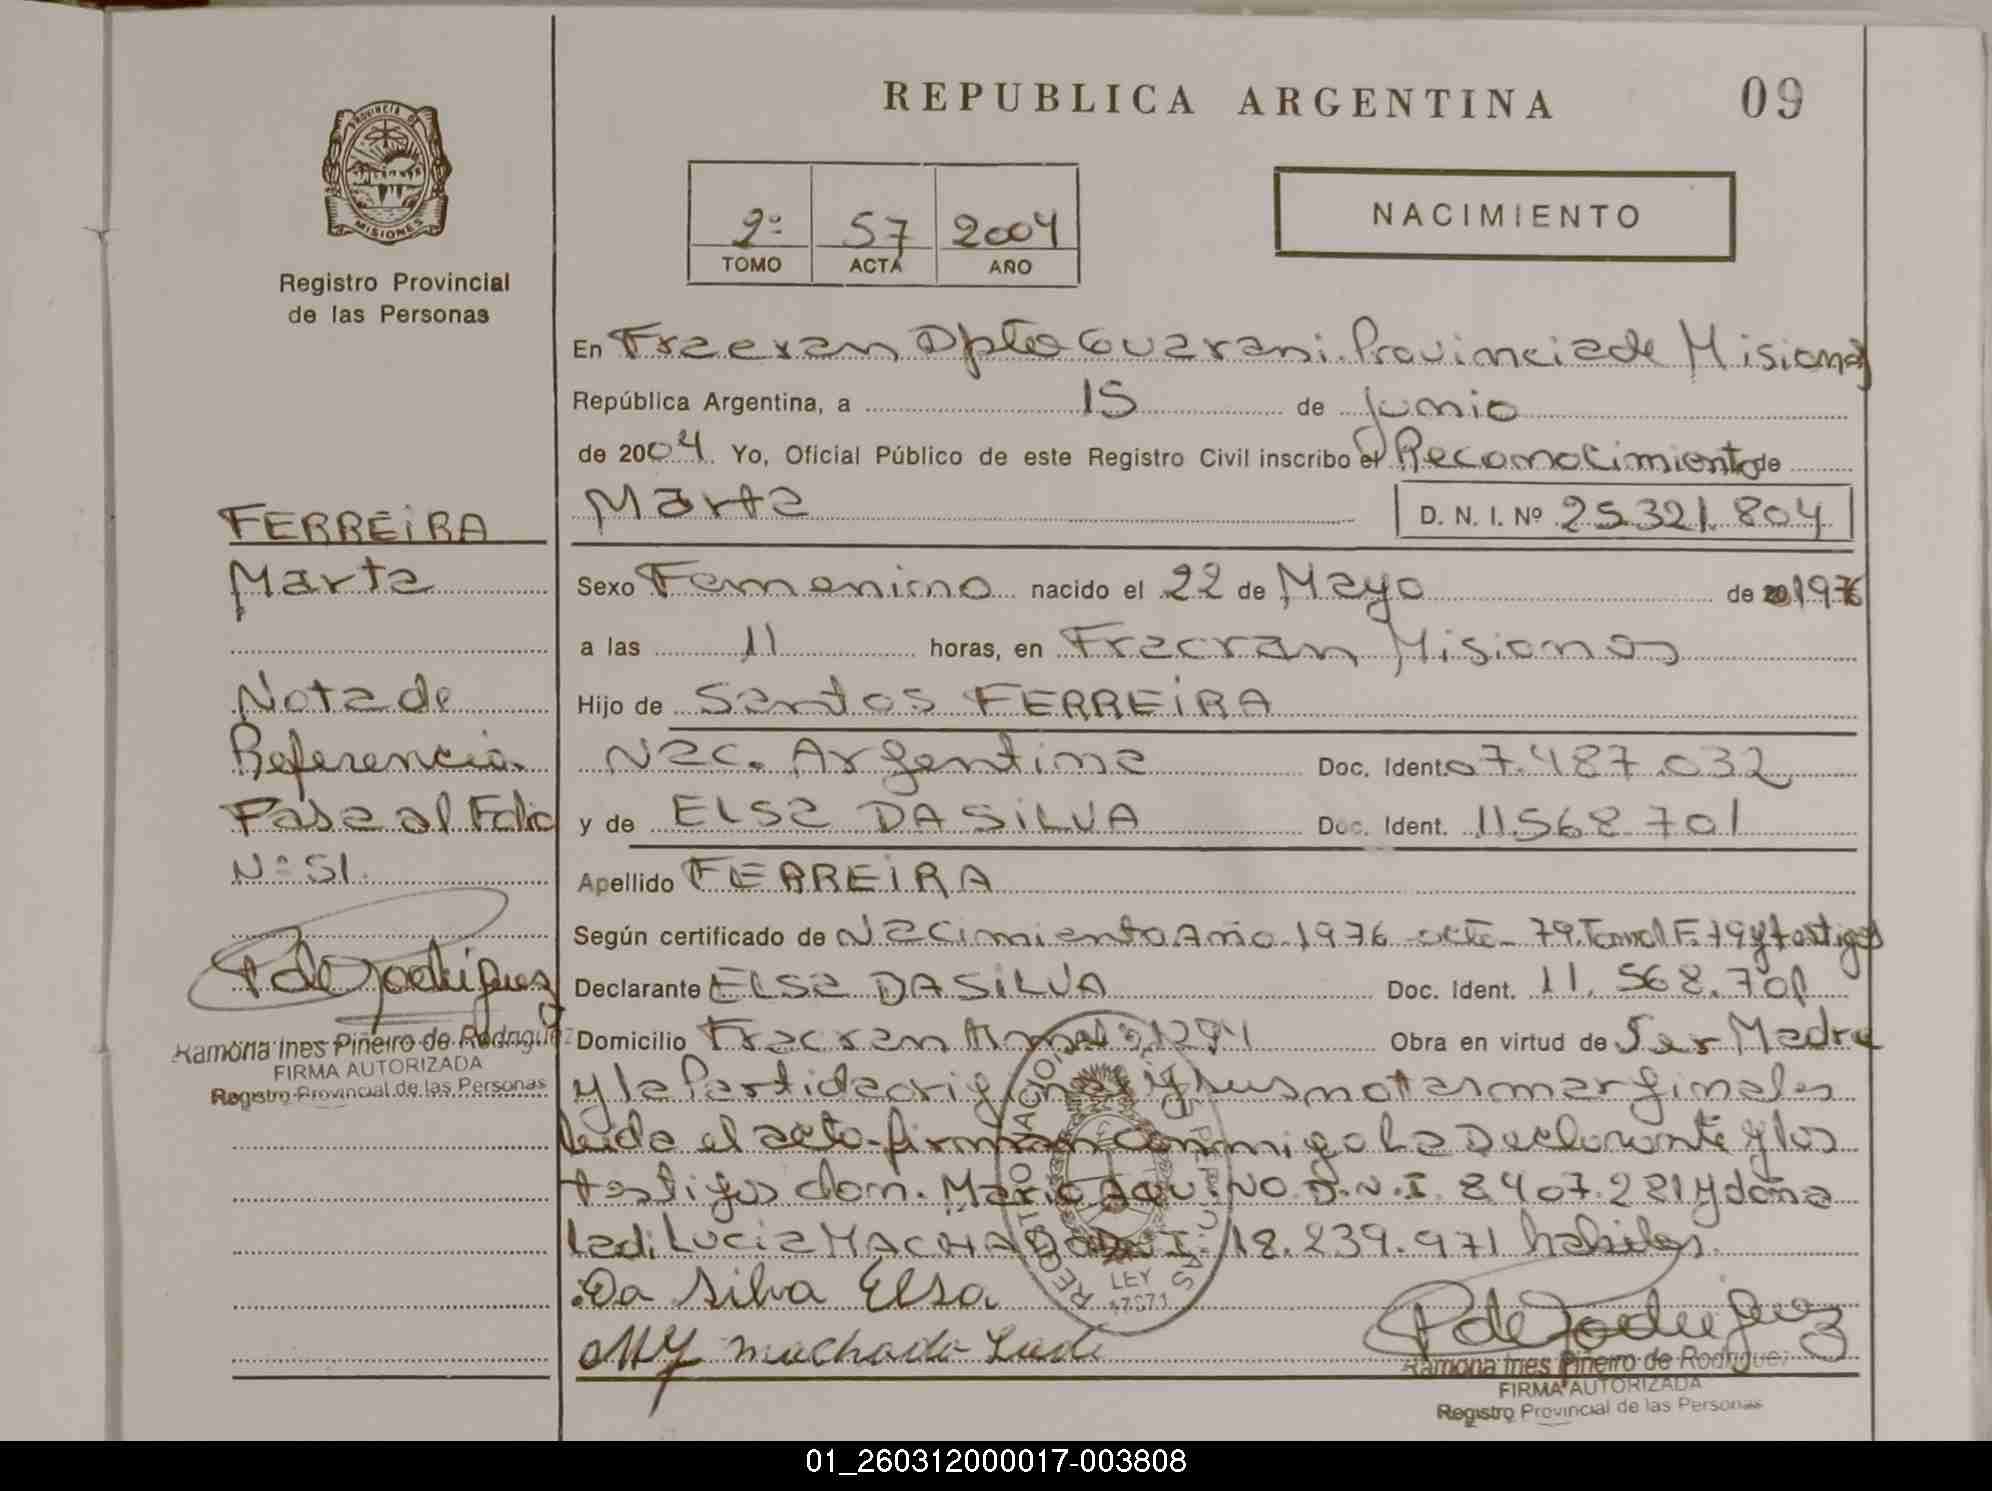 REPUBLICA ARGENTINA
09
PROVINCIA DE
MISIONES
Registro Provincial
de las Personas
2º 57 2004
TOMO ACTA AÑO
NACIMIENTO
En Fracran Dpto Guarani. Provincia de Misiones
República Argentina, a 15 de Junio
de 2004. Yo, Oficial Público de este Registro Civil inscribo el Reconocimiento de
Marta D. N. I. Nº 25.321.804
FERREIRA
Marta
Nota de
Referencia
Pasa al Folio
Nº 51.
Ramona Ines Piñeiro de Rodriguez
FIRMA AUTORIZADA
Registro Provincial de las Personas
Sexo Femenino nacido el 22 de Mayo de 20 1976
a las 11 horas, en Fracran Misiones
Hijo de Santos FERREIRA
Nac. Argentina Doc. Ident. 07.487.032
y de ELSA DA SILVA Doc. Ident. 11.568.701
Apellido FERREIRA
Según certificado de Nacimiento Año 1976 acta 79. Tomo I F. 79 y testigos
Declarante ELSA DA SILVA Doc. Ident. 11.568.701
Domicilio Fracran 1294 Obra en virtud de Ser Madre
y la Partida original y sus notas marginales
leida el acta firman conmigo la Declarante y los
testigos don. Mario AQUINO D.N.I. 8.407.281 y doña
Ladi Lucia MACHADO D.N.I. 18.239.971 habiles.
Da Silva Elsa
Machado Ladi
LEY
17671
P de Rodriguez
Ramona Ines Piñeiro de Rodriguez
FIRMA AUTORIZADA
Registro Provincial de las Personas
01_260312000017-003808